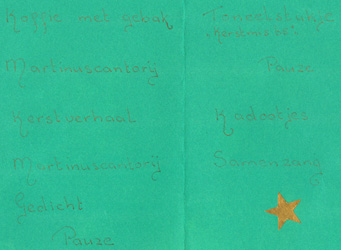 Koffie met gebak
Martinuscantorij
Kerstverhaal
Martinuscantorij
Gedicht
Pauze
Toneelstukje
Pauze
Kadootjes
Samenzang